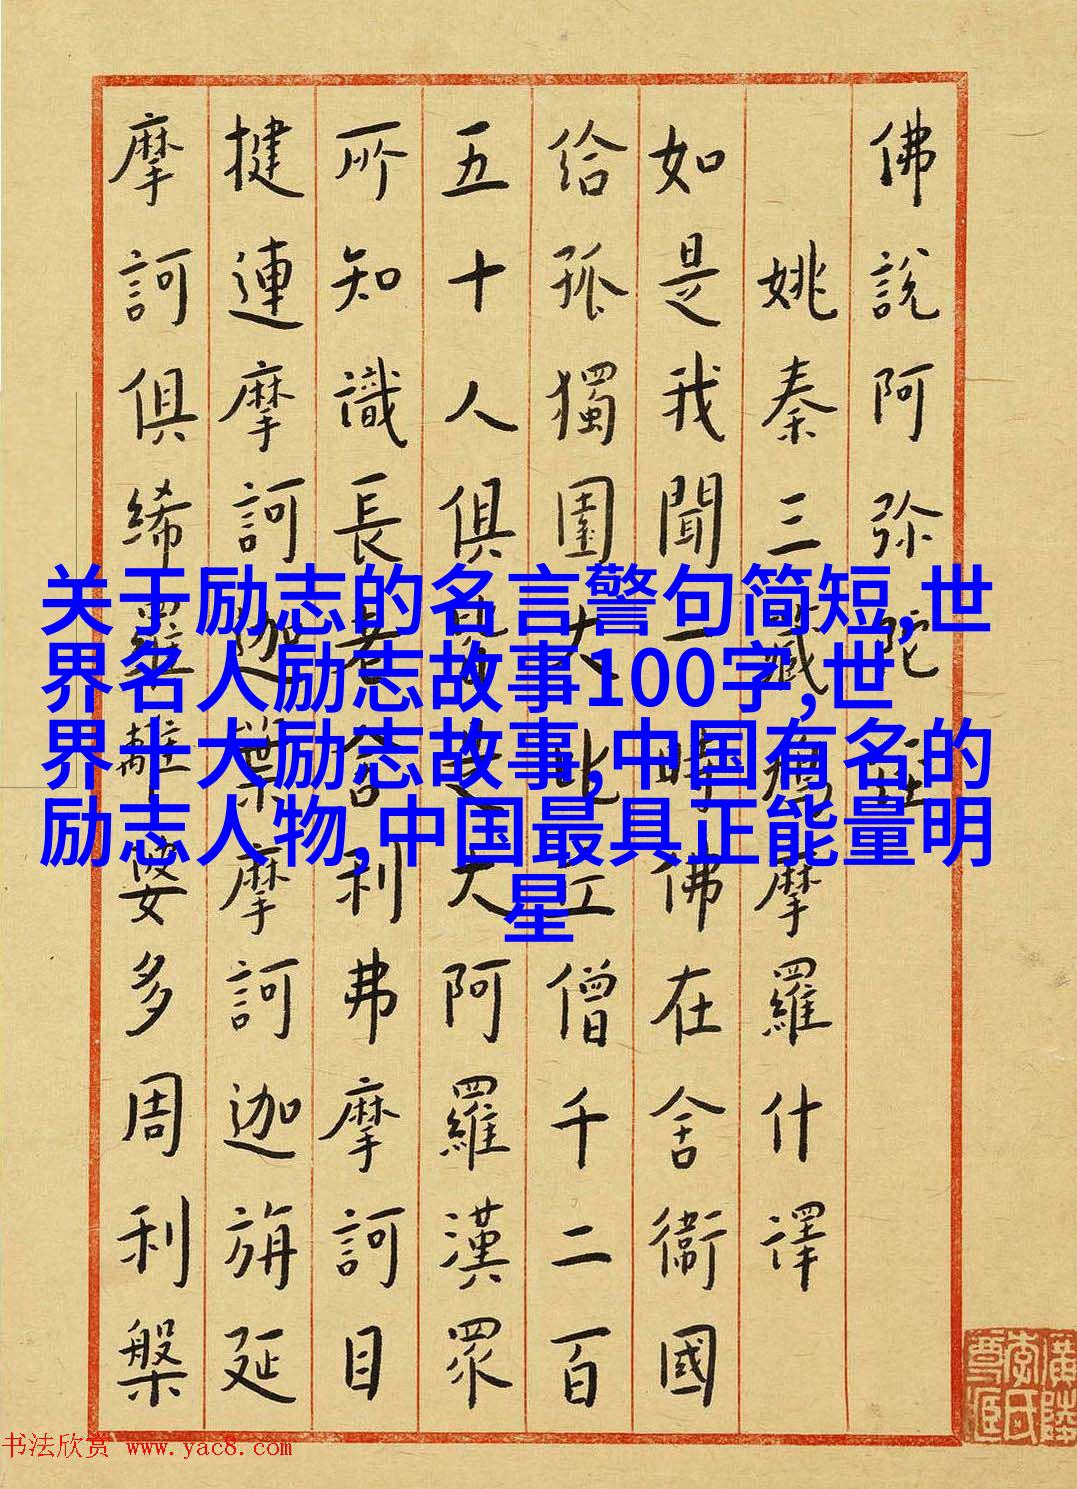 佛說阿弥陀
姚秦三藏鳩摩羅什譯
如是我聞一時佛在舍衞國
給孤獨園大比丘僧千二百
五十人俱皆是大阿羅漢眾
所知識長老舍利弗摩訶目
揵連摩訶迦葉摩訶迦旃延
摩訶俱絺羅離婆多周利槃
关于励志的名言警句简短,世
界名人励志故事100字,世
界十大励志故事,中国有名的
励志人物,中国最具正能量明
星
书法欣赏 www.yac8.com